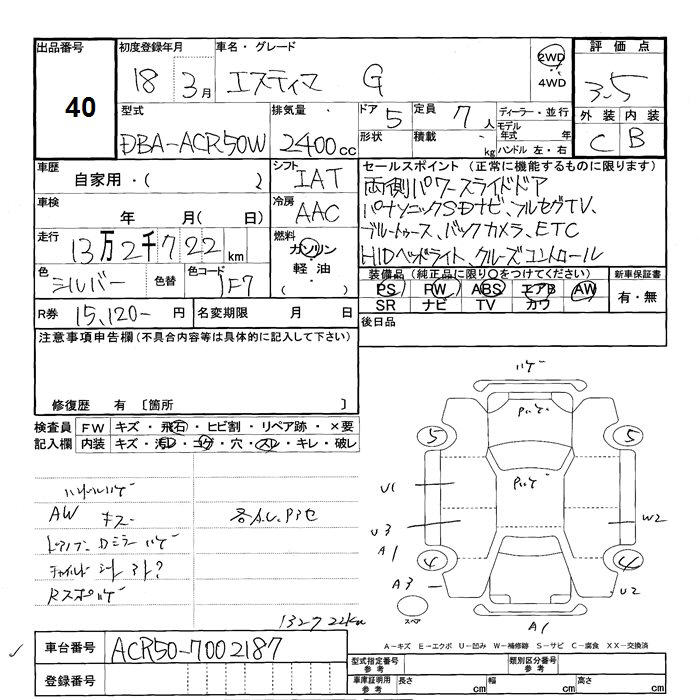 出品番号
40
初度登録年月
18 3月
車名・グレード
エスティマ G
2WD
4WD
評価点
3.5
外装 内装
C B
型式
DBA-ACR50W
排気量
2400cc
ドア 5
形状
定員 7人
積載 kg
ディーラー・並行
モデル年式 年
ハンドル 左・右
車歴
自家用・( )
車検
年 月( 日)
走行
13万2千722km
色
シルバー
色替
色コード
1F7
シフト
IAT
冷房
AAC
燃料
ガソリン
軽油
( ・ )
セールスポイント(正常に機能するものに限ります)
両側パワースライドドア
パナソニックSDナビ、フルセグTV、
ブルートゥース、バックカメラ、ETC
HIDヘッドライト、クルーズコントロール
装備品(純正品に限り○をつけてください)
PS PW ABS エアB AW
SR ナビ TV カワ
新車保証書
有・無
R券 15,120- 円
名変期限 月 日
後日品
注意事項申告欄(不具合内容等は具体的に記入して下さい)
修復歴 有 [箇所 ]
検査員記入欄
FW キズ・飛石・ヒビ割・リペア跡・×要
内装 キズ・汚レ・コゲ・穴・スレ・キレ・破レ
ハンドルハゲ
AW キズ
ドアノブ Dミラーハゲ
132722km
ハゲ
5 5
U1
U3
A1
W2
4 4
A3
U2
スペア
A1
A-キズ E-エクボ U-凹み W-補修跡 S-サビ C-腐食 XX-交換済
車台番号 ACR50-7002187
登録番号
型式指定番号
参考
類別区分番号
参考
車庫証明用
参考
長さ cm
幅 cm
高さ cm